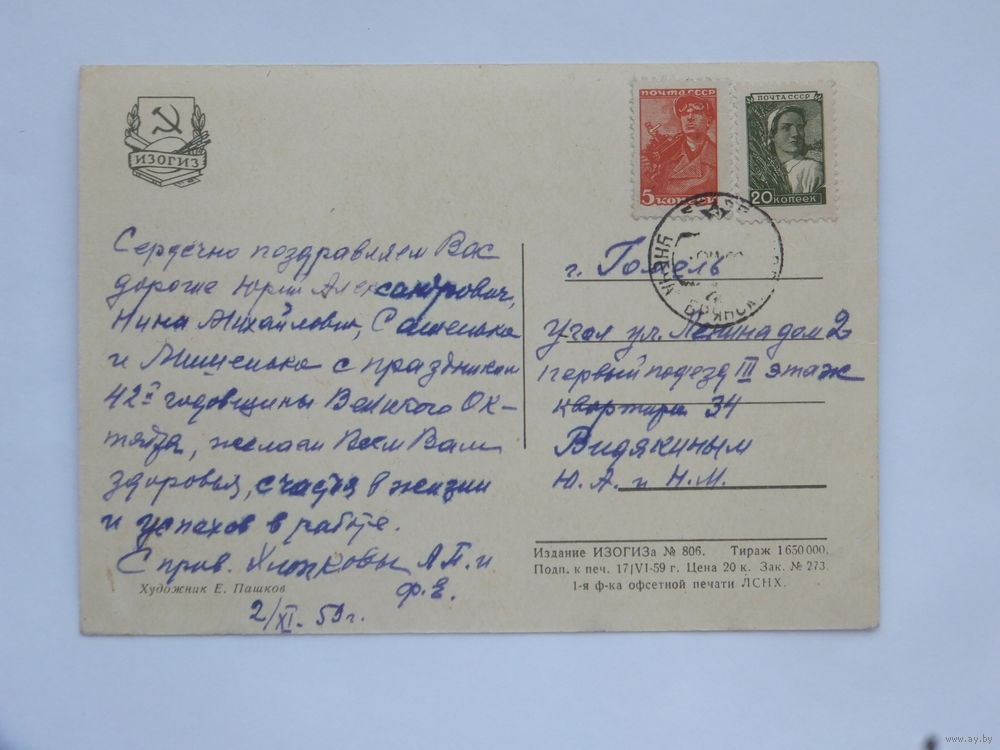 ИЗОГИЗ
ПОЧТА СССР
5 КОПЕЕК
ПОЧТА СССР
20 КОПЕЕК
Сердечно поздравляем Вас
дорогие Юрий Александрович,
Нина Михайловна, Сашенька
и Мишенька с праздником
42й годовщины Великого Ок-
тября, желаем Всем Вам
здоровья, счастья в жизни
и успехов в работе.
С прив. А.П. и
Ф.Е.
2/XI-59г.
Художник Е. Пашков
г. Гомель
Угол ул. Ленина дом 2
первый подъезд III этаж
квартира 34
Видякиным
Ю.А. и Н.М.
Издание ИЗОГИЗа № 806. Тираж 1 650 000.
Подп. к печ. 17/VI-59 г. Цена 20 к. Зак. № 273.
1-я ф-ка офсетной печати ЛСНХ.
www.ay.by